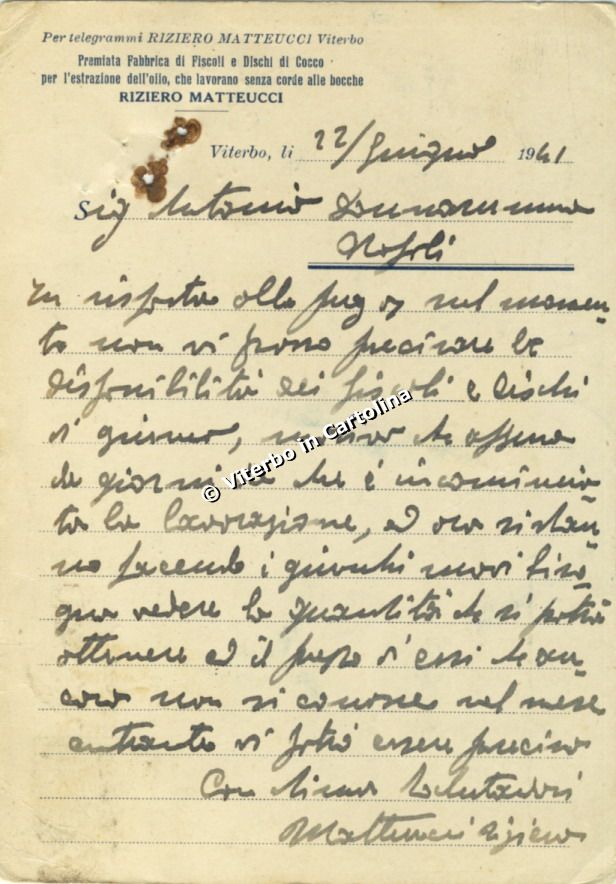 Per telegrammi RIZIERO MATTEUCCI Viterbo
Premiata Fabbrica di Fiscoli e Dischi di Cocco
per l'estrazione dell'olio, che lavorano senza corde alle bocche
RIZIERO MATTEUCCI
Viterbo, li 22/Giugno 1941
Sig Antonio
Napoli
In risposta alla nel momen-
to non vi posso precisare la
disponibilità dei fiscoli e dischi
di giunco, motivo che appena
da giorni che è incomincia-
ta la lavorazione, ed ora si stan-
no facendo i giunchi nuovi biso-
gna vedere la quantità che si potrà
ottenere ed il prezzo di essi che an-
cora non si conosce nel mese
entrante vi potrò essere preciso
Con stima salutandovi
Matteucci Riziero
© Viterbo in Cartolina